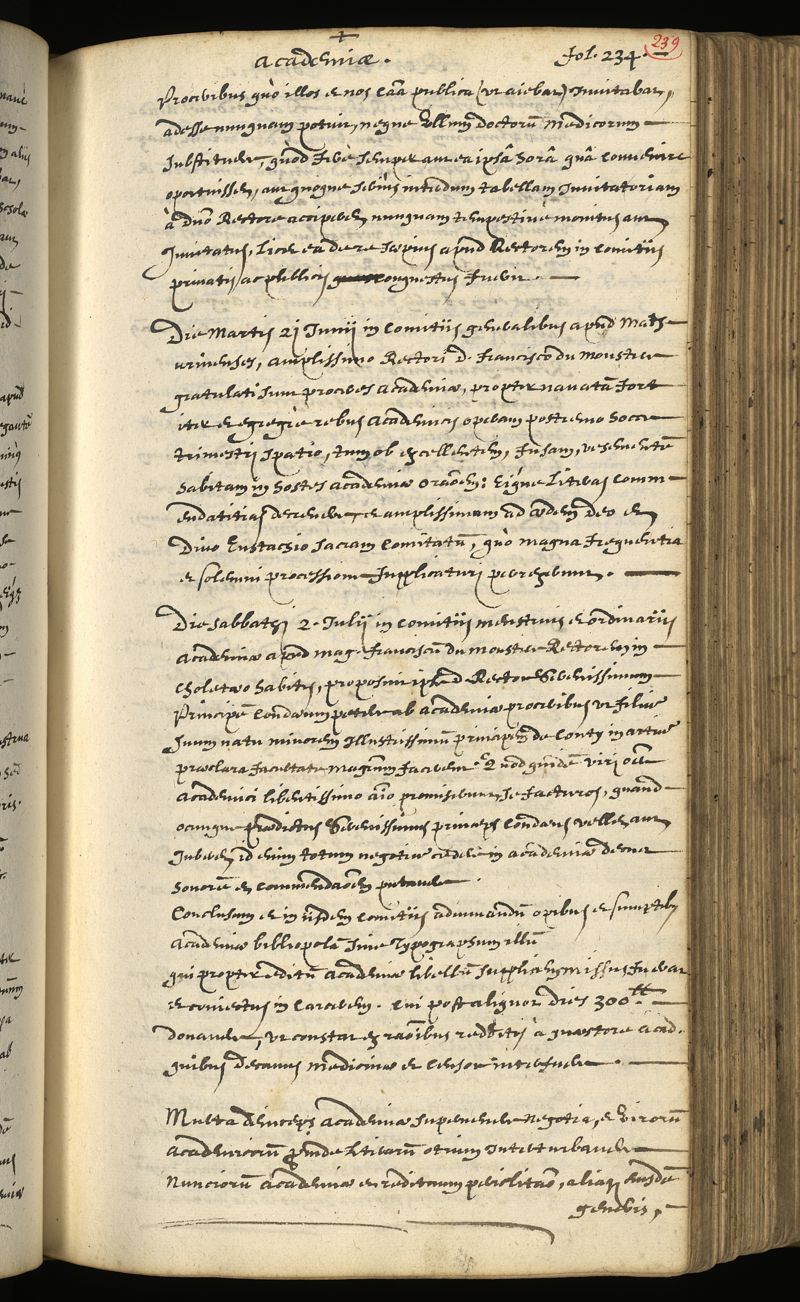 Academiæ.
Fol. 234.
239
Proceribus quò illos et nos caâ publica (ut aiebat) Invitabat,
adesse nunquam potuit, neque Ullum doctorũ medicorum
Substituere, quòd ferè semper aut ea ipsâ horâ quâ convenire
oportuisset, aut quoque seriùs interdum tabellam Invitatoriam
à dno Rectore acciperet, nunquam tempestivè monitus aut
Invitatus, licet ea de re sæpius apud Rectorem in Comitiis
privatis ac publicis conquestus fuerit.
Die Martis 21 Junij in Comitiis generalibus apud Math-
urinenses, amplissimo Rectori D. Francisco du Monstier
gratulati sunt proceres Academiæ, propter navatã fort
iter et egregiè rebus Academicis operam postremo hocce
trimestri spatio, tum ob excellentem,
habitam in hostes Academiæ oraõem: Eique literas comm-
endatitias decrevere, et amplissimum ad ædem deo et
Divo Eustachio sacram Comitatũ, quò magna frequentia
et solemni processione supplicaturi pergerent.
Die Sabbathi 2. Julij in comitiis menstruis et ordinariis
Academiæ apud mag. Franciscũ du Monstier Rectorem in
Choletæo habitis, proposuit ipse D. Rector Serenissimum
Principẽ Condæum petere ab Academiæ proceribus ut filiũ
suum natu minorem Illustrissimũ principem de Conty in artiũ
præclara facultate magrũm facerent. Quod quidẽ viri oẽs
Academici libentissimo aio promiserunt, se facturos, quand-
ocunque prædictus Serenissimus princeps Condæus vellet aut
Juberet, id enim totum negotiũ cedere in Academiæ decus
honorẽ et commendaõem putavere.
Conclusum et in iisdem Comitiis adiuvandũ opibus et sumptibꝫ
Academiæ bibliopolã sive Typographum illũ
qui propter editũ Academiæ libellũ supplicem missus fuerat
et coniectus in Carcerem. Cui post aliquot dies 300 lt
donavere, ut constat ex raõibus redditis à quæstore Acad.
quibus Decanus medicinæ et Censor interfuere.
Multa deinceps Academiæ supervenere negotia, et Virorũ
Academicorũ proinde literarũ otium interturbavere
Nunciorũ Academiæ et redituum periclitaõ, aliaqꝫ eiusdẽ
generis,